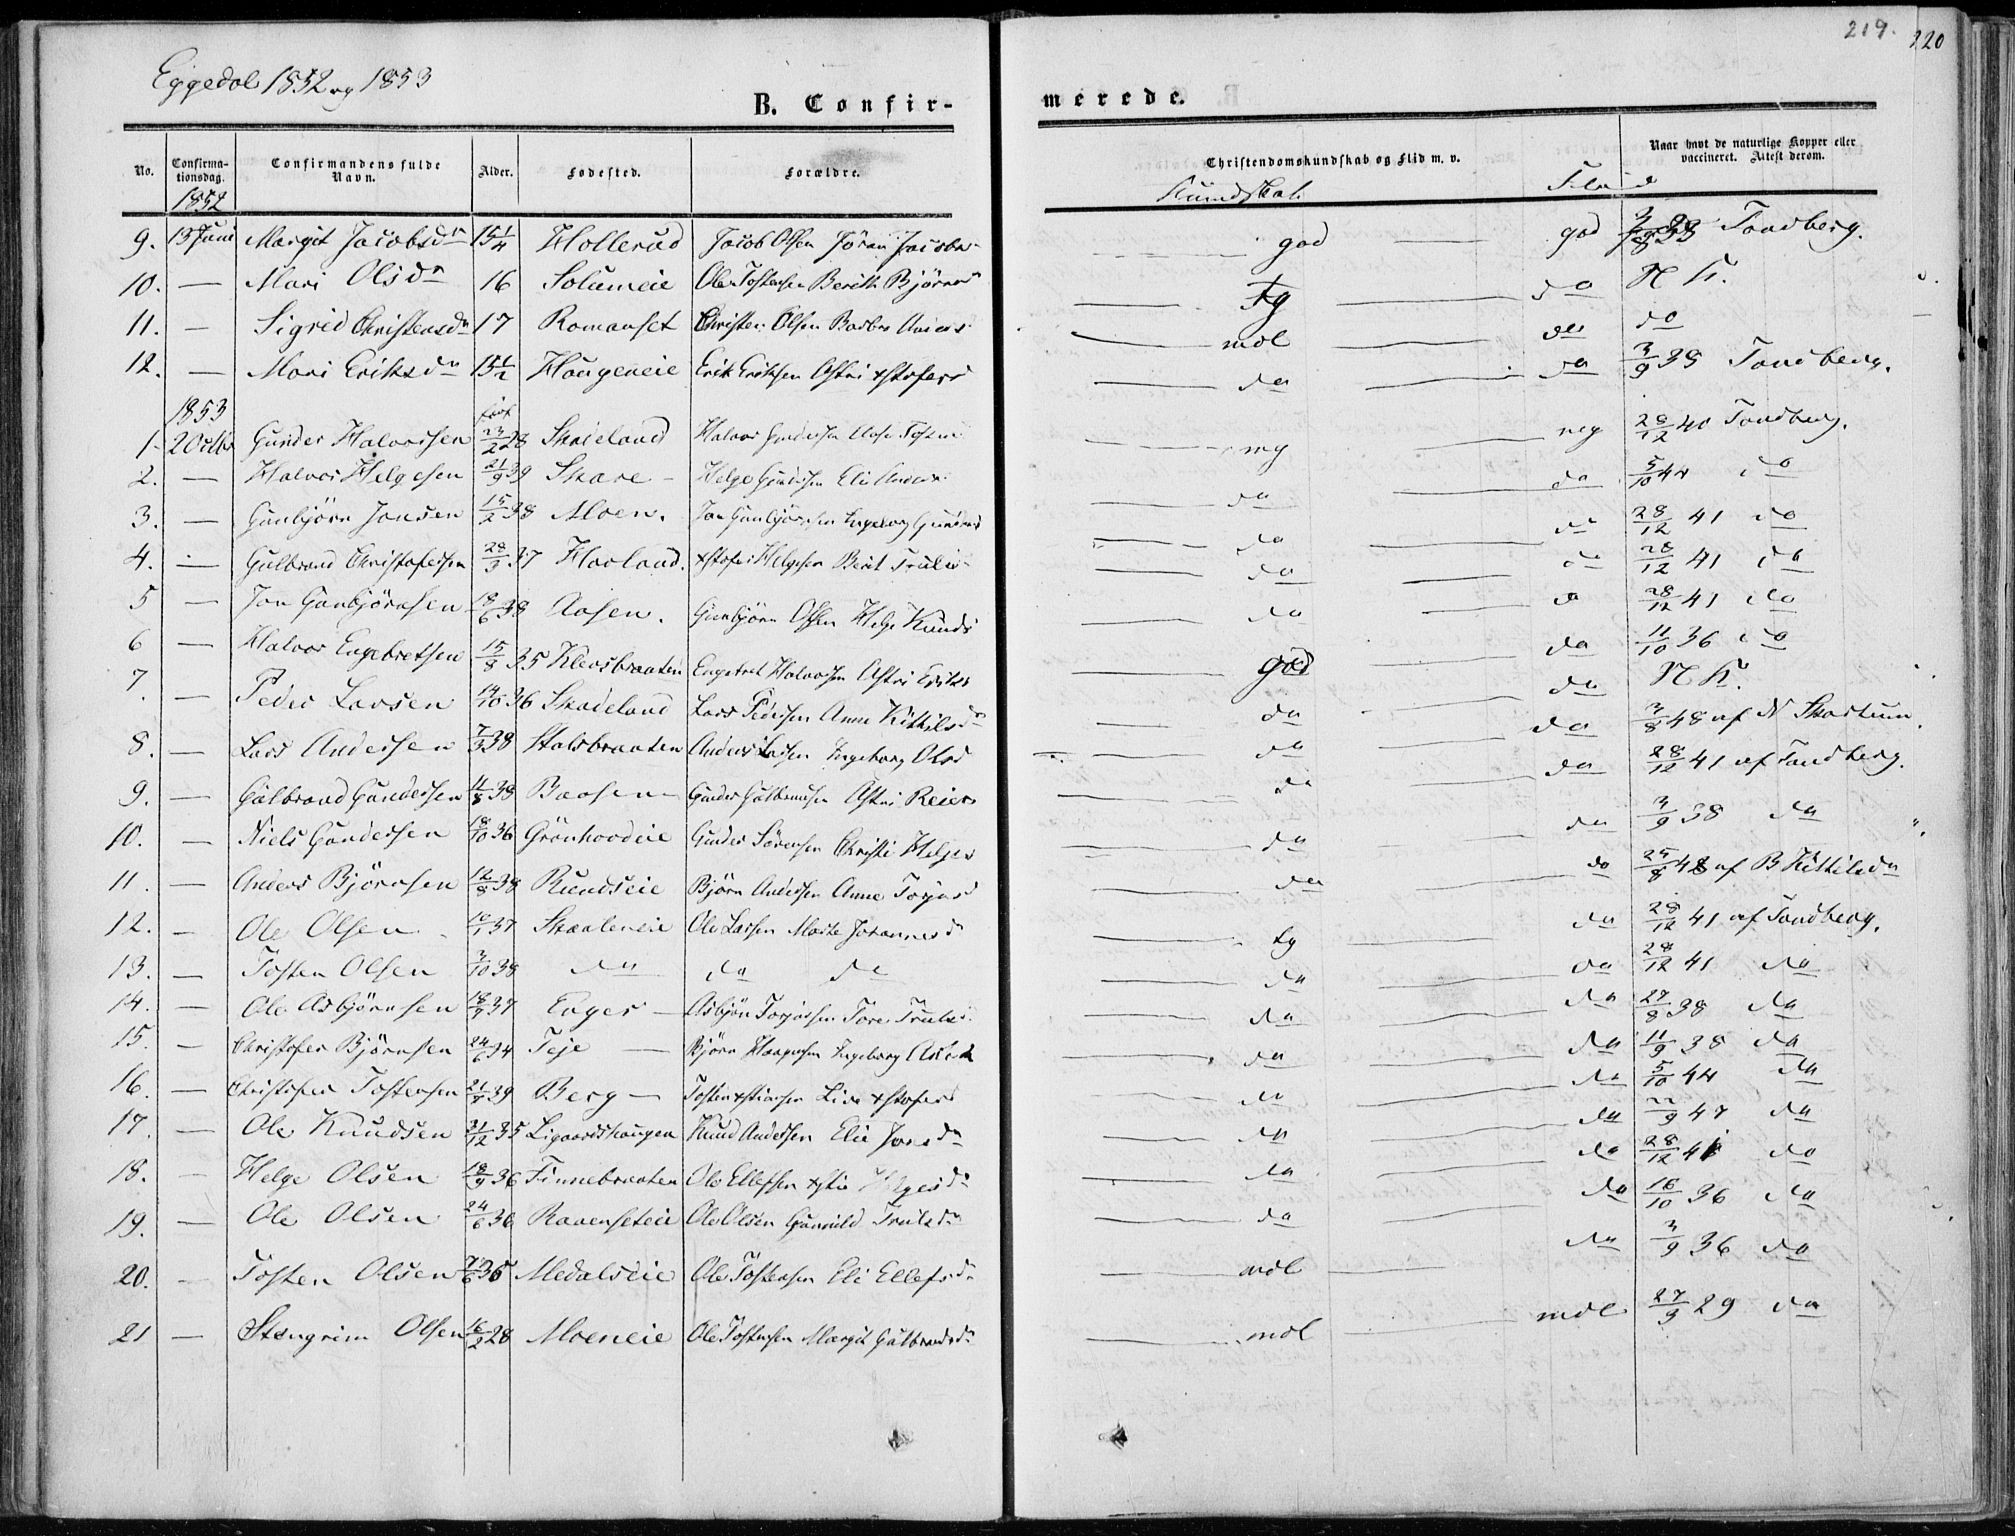 219. 220
Eggedal 1852 og 1853
B. Confir- merede.
No. Confirma-tionsdag. Confirmandens fulde Navn. Alder. Fødested. Forældre. Christendomskundskab og Flid m. v. Naar havt de naturlige Kopper eller vaccineret. Attest derom.
1852 Kundskab Flid
9. 13 Juni Margit Jacobsdr 15 1/4 Hollerud Jacob Olsen Jøran Jacobs god god 33 Tandberg.
10. — Mari Olsdr 16 Solumeie Ole Tostensen Berith Bjørns Tg do N K.
11. — Sigrid Christensdr 17 Romanset Christen Olsen Barbro mdl do do
12. — Mari Eriksdr 15 1/2 Haugeneie Erik Eriksen Astri Xstofersd do do 3/9 38 Tandberg.
1853 født
1. 2 Octbr Gunder Halvorsen 23/2 28 Skadeland Halvor Gundersen mg meg 28/12 40 Tandberg.
2. — Halvor Helgesen 21/9 39 Skare — Helge Gundersen Eli Anders do do 5/10 44 do
3. — Gunbjørn Jonsen 15/2 38 Moen. Jon Gunbjørnsen Ingeborg Gunders do do 28/12 41 do
4. — Gulbrand Christofersen 28/3 37 Havland. Xstofer Helgesen Berit Truls do do 28/12 41 do
5 — Jon Gunbjørnsen 18/6 38 Aasen. Gunbjørn Olsen Helge Knuds do do 28/12 41 do
6 — Halvor Engebretsen 15/8 35 Klevsbraaten Engebret Halvorsen Astri Eriks god do 11/10 36 do
7. — Peder Larsen 14/10 36 Skadeland Lars Pedersen Anne Kittilsdr do do N K.
8. — Lars Andersen 7/3 38 Stalsbraaten Anders Larsen Ingeborg Olsd do do 3/8 48 af N Skartum.
9. — Gulbrand Gundersen 11/8 38 Baasen Gunder Gulbrandsen Astri Reiers do do 28/12 41 af Tandberg.
10. — Niels Gundersen 18/10 36 Grønhovdeie Gunder Sørensen Christi Helges do do 3/9 38 do
11. — Anders Bjørnsen 12/8 38 Rundseie Bjørn Andersen Anne Torjusd do do 25/8 48 af B Kittilsdr
12. — Ole Olsen 10/1 37 Skaaleneie Ole Larsen Marte Johannesd tg do 28/12 41 af Tandberg.
13. — Tosten Olsen 3/10 38 do do do do do 28/12 41 do
14. — Ole Asbjørnsen 18/7 37 Enger — Asbjørn Torjussen Tore Truls do do 27/8 38 do
15. — Christofer Bjørnsen 24/6 34 Teje — Bjørn Haagensen Ingeborg do do 11/9 38 do
16. — Christofer Tostensen 21/7 39 Berg — Tosten Xstiansen Live Xstofers do do 5/10 44 do
17. — Ole Knudsen 31/12 35 Ligaardshaugen Knud Andersen Elie Jonsdr do do 22/9 47 do
18. — Helge Olsen 18/9 36 Finnebraaten Ole Ellefsen Xstie Helgesdr do do 28/12 41 do
19. — Ole Olsen 24/6 36 Ravenseteie Ole Olsen Gunnild Trulsdr do do 16/10 36 do
20. — Tosten Olsen 36 Medalseie Ole Tostensen Eli Ellefsdr mdl do 3/9 36 do
21 — Stengrim Olsen 16/2 28 Moeneie Ole Tostensen Margit Gulbrandsdr mdl mdl 27/9 29 do